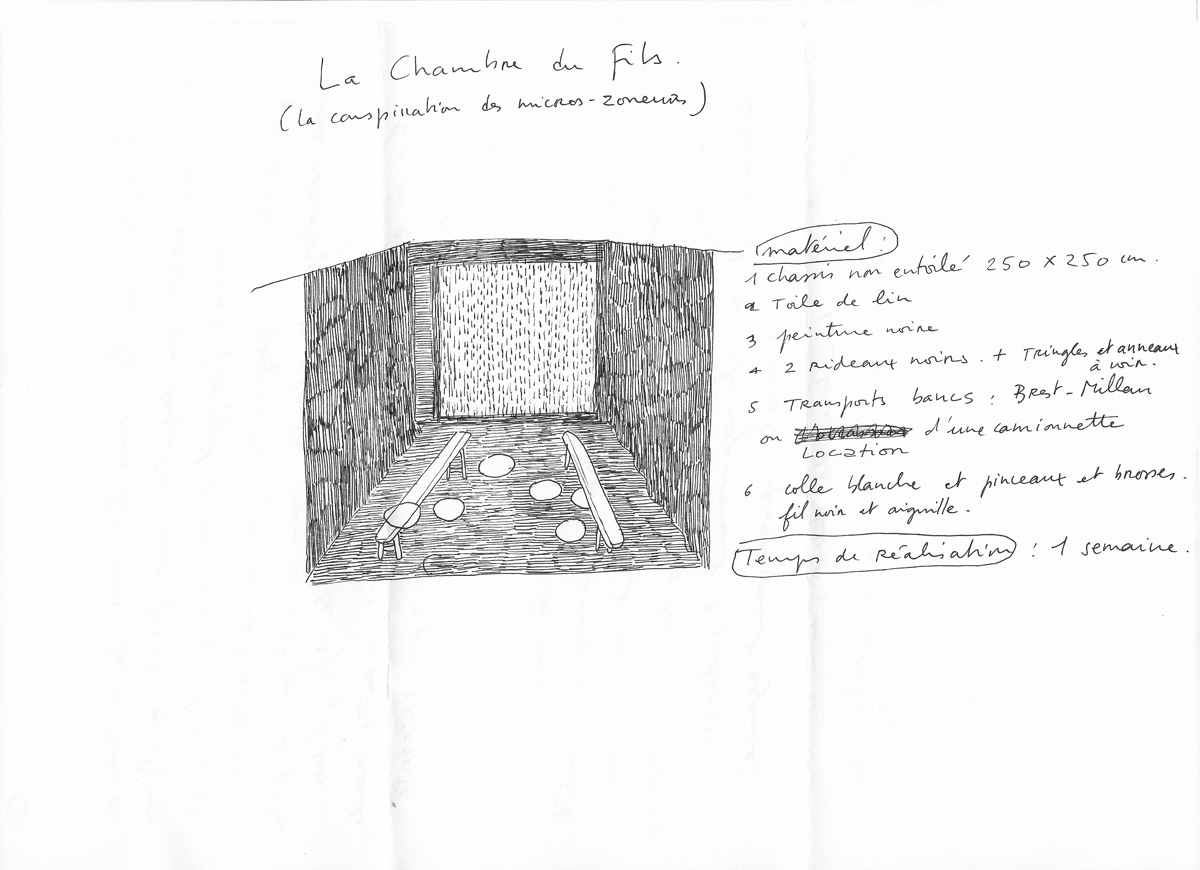 La Chambre du Fils.
(la conspiration des micros-zoneurs)
matériel :
1 chassis non entoilé 250 x 250 cm.
2 Toile de lin
3 peinture noire
4 2 rideaux noirs. + Tringles et anneaux
à voir.
5 Transports bancs : Brest - Millau
ou d'une camionnette
Location
6 colle blanche et pinceaux et brosses.
fil noir et aiguille.
Temps de réalisation : 1 semaine.